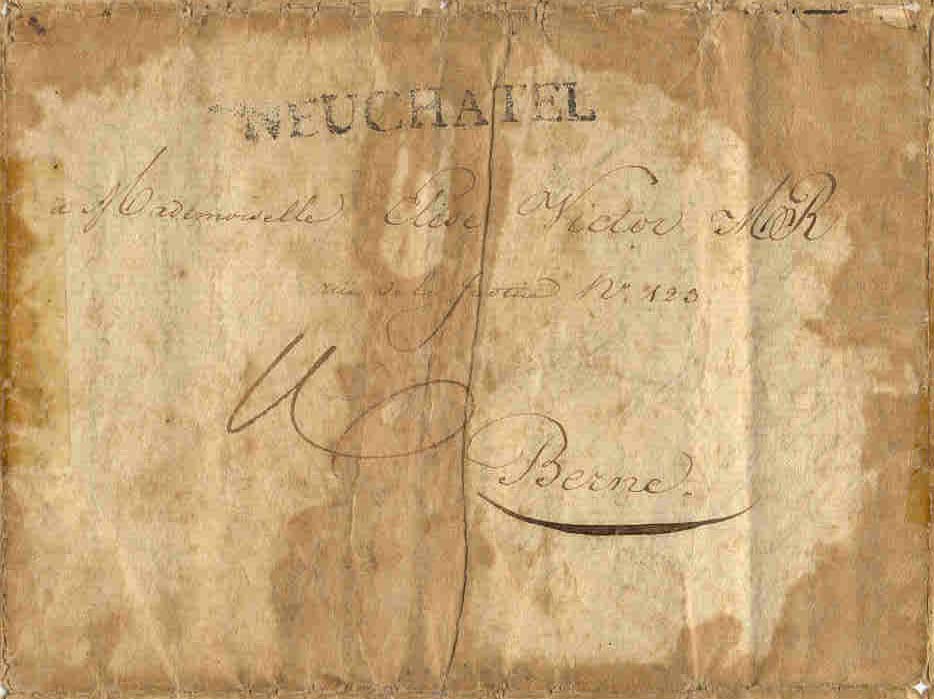 NEUCHATEL
à Mademoiselle Elise Victor MR
rue de la No. 123
Berne.